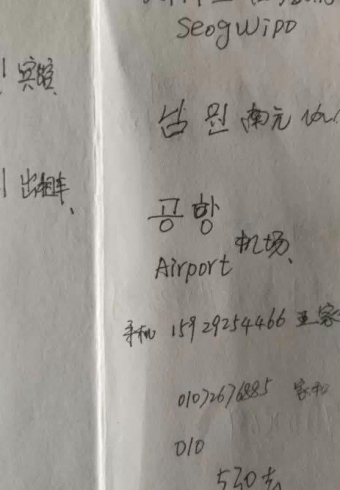 Seogwipo
宾馆
남원 南元
出租车、
공항
机场、
Airport
手机 15929254466
01072676885 家和
010
530